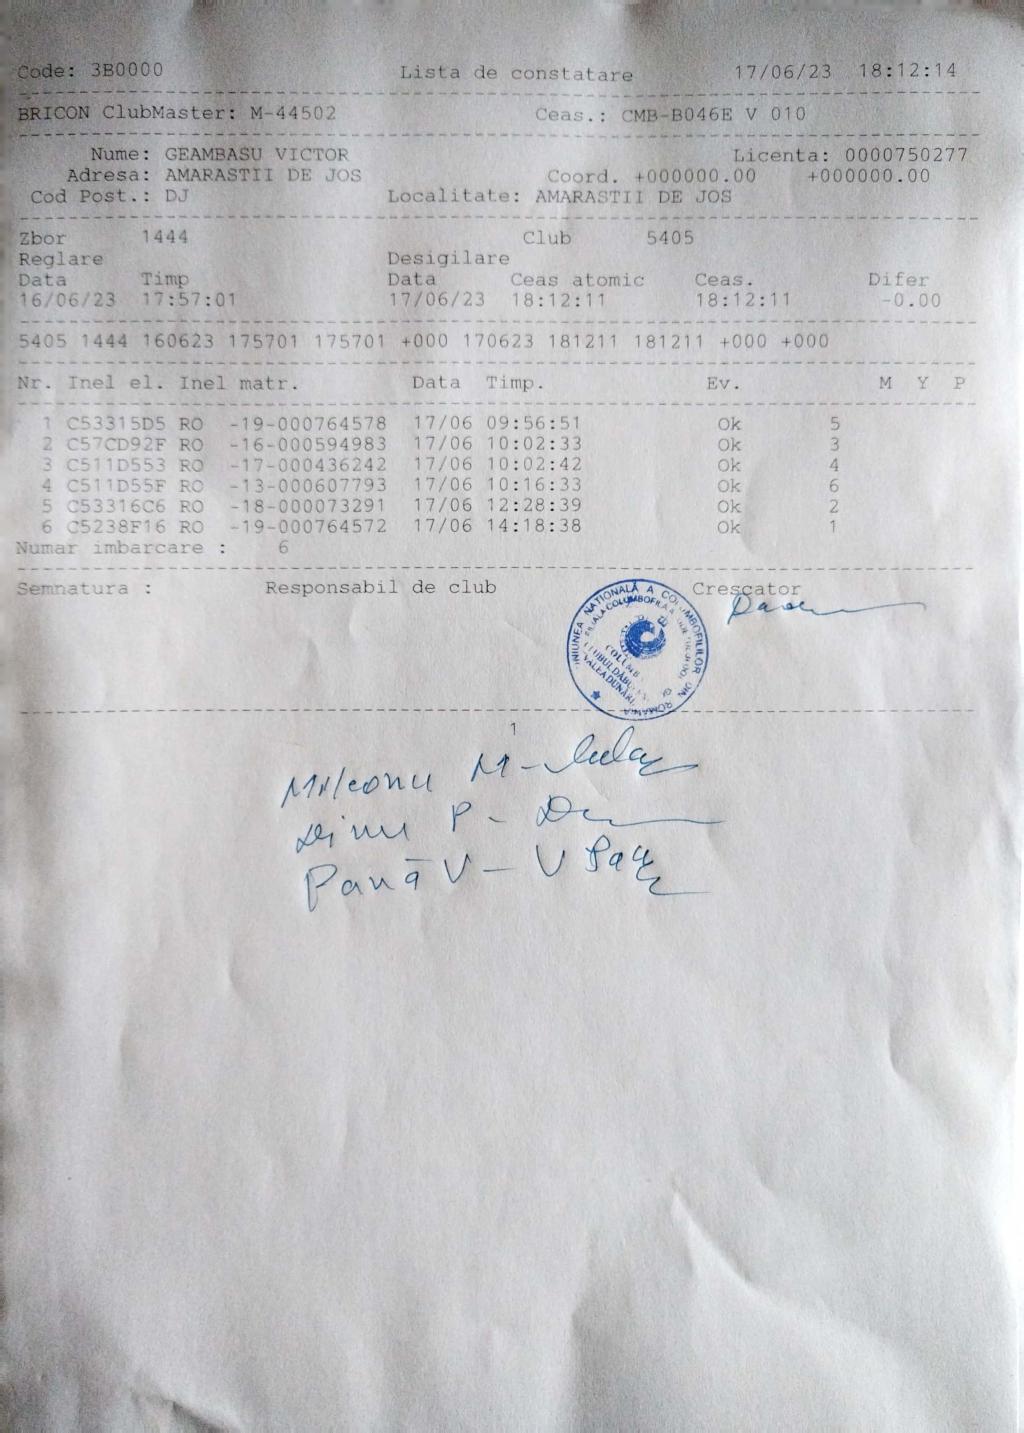 Code: 3B0000 Lista de constatare 17/06/23 18:12:14
BRICON ClubMaster: M-44502 Ceas.: CMB-B046E V 010
Nume: GEAMBASU VICTOR Licenta: 0000750277
Adresa: AMARASTII DE JOS Coord. +000000.00 +000000.00
Cod Post.: DJ Localitate: AMARASTII DE JOS
Zbor 1444 Club 5405
Reglare Desigilare
Data Timp Data Ceas atomic Ceas. Difer
16/06/23 17:57:01 17/06/23 18:12:11 18:12:11 -0.00
5405 1444 160623 175701 175701 +000 170623 181211 181211 +000 +000
Nr. Inel el. Inel matr. Data Timp. Ev. M Y P
1 C53315D5 RO -19-000764578 17/06 09:56:51 Ok 5
2 C57CD92F RO -16-000594983 17/06 10:02:33 Ok 3
3 C511D553 RO -17-000436242 17/06 10:02:42 Ok 4
4 C511D55F RO -13-000607793 17/06 10:16:33 Ok 6
5 C53316C6 RO -18-000073291 17/06 12:28:39 Ok 2
6 C5238F16 RO -19-000764572 17/06 14:18:38 Ok 1
Numar imbarcare : 6
Semnatura : Responsabil de club Crescator
UNIUNEA NAȚIONALĂ A COLUMBOFILILOR DIN ROMANIA
VALEA DUNĂRII
1
M -
Dinu P -
Pană V - V